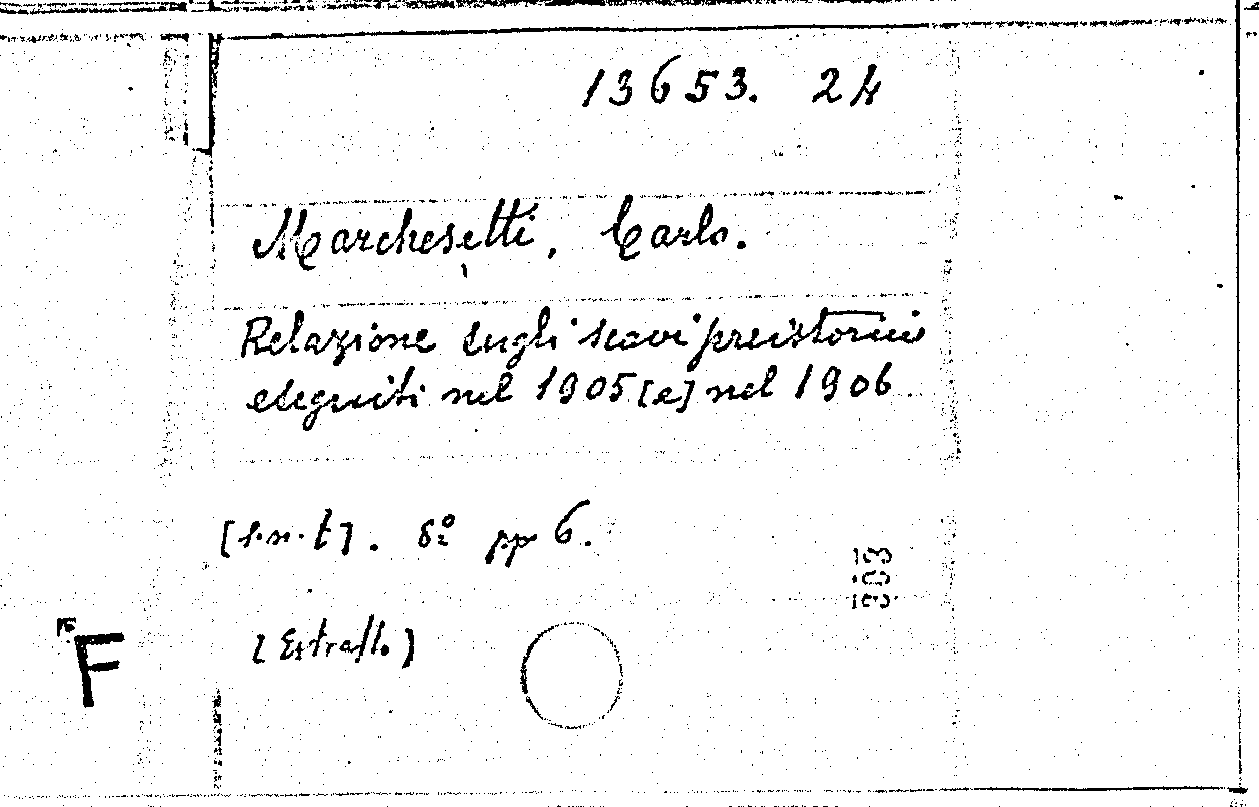 13653. 24
Marchesetti, Carlo.
Relazione sugli scavi preistorici
eseguiti nel 1905 [e] nel 1906.
[s.n.t]. 8º pp 6.
303
F
[Estratto]